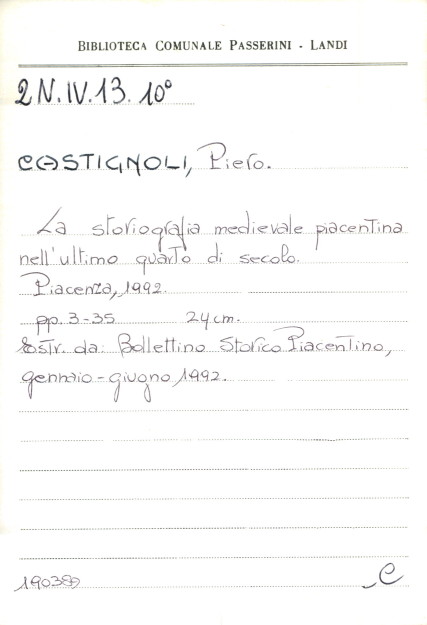 BIBLIOTECA COMUNALE PASSERINI - LANDI
2N.IV.13. 10°
CASTIGNOLI, Piero.
La storiografia medievale piacentina
nell'ultimo quarto di secolo.
Piacenza, 1992.
pp. 3-35 24 cm.
Estr. da: Bollettino Storico Piacentino,
gennaio-giugno 1992.
C